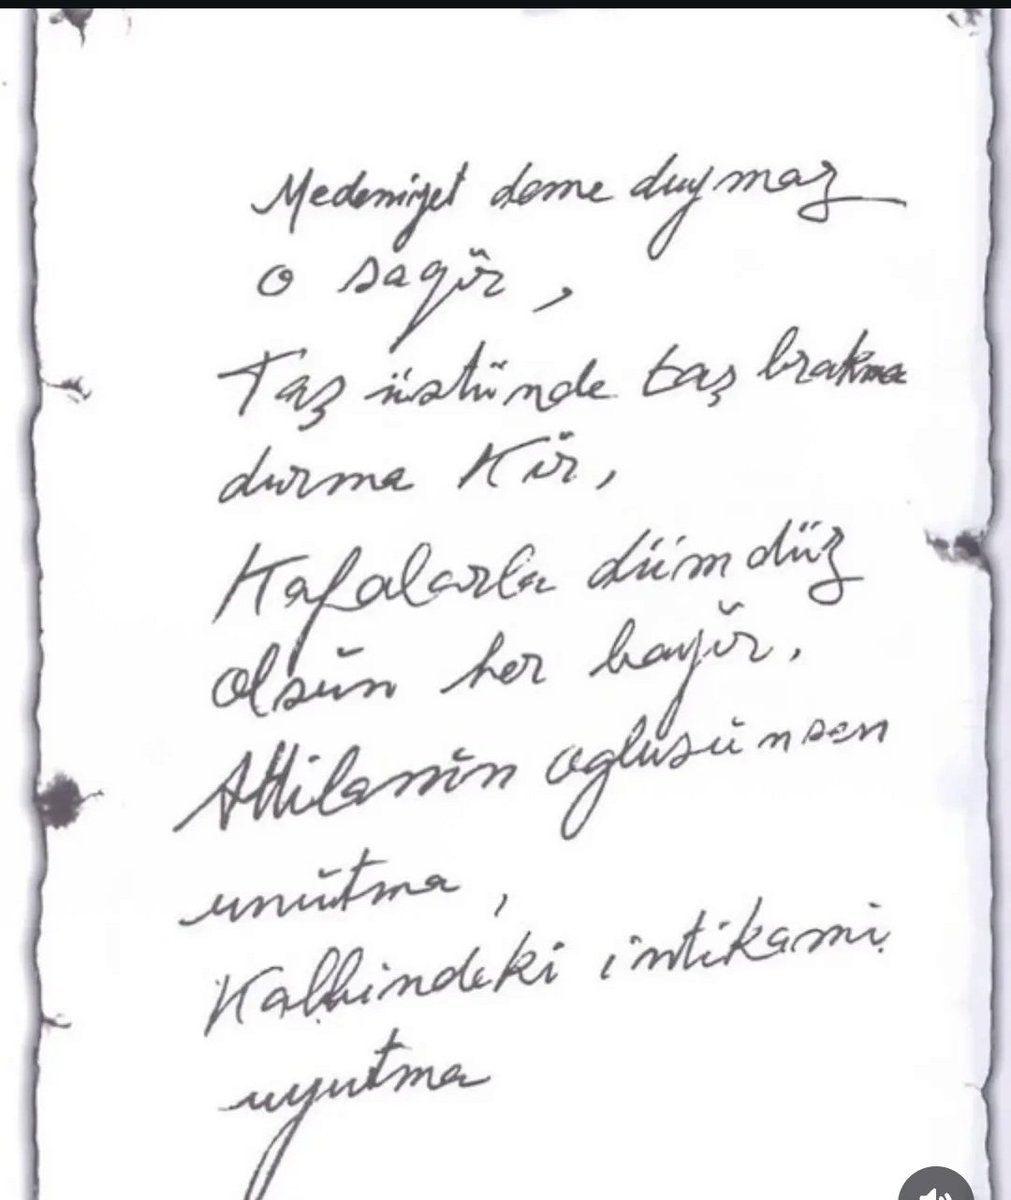 Medeniyet deme duymaz
o sagır,
Taş üstünde taş brakma
durma Kır,
Kafalarla dümdüz
olsün her bayır.
Attilanın oglusün sen
unütma,
Kalbindeki intikami
uyutma